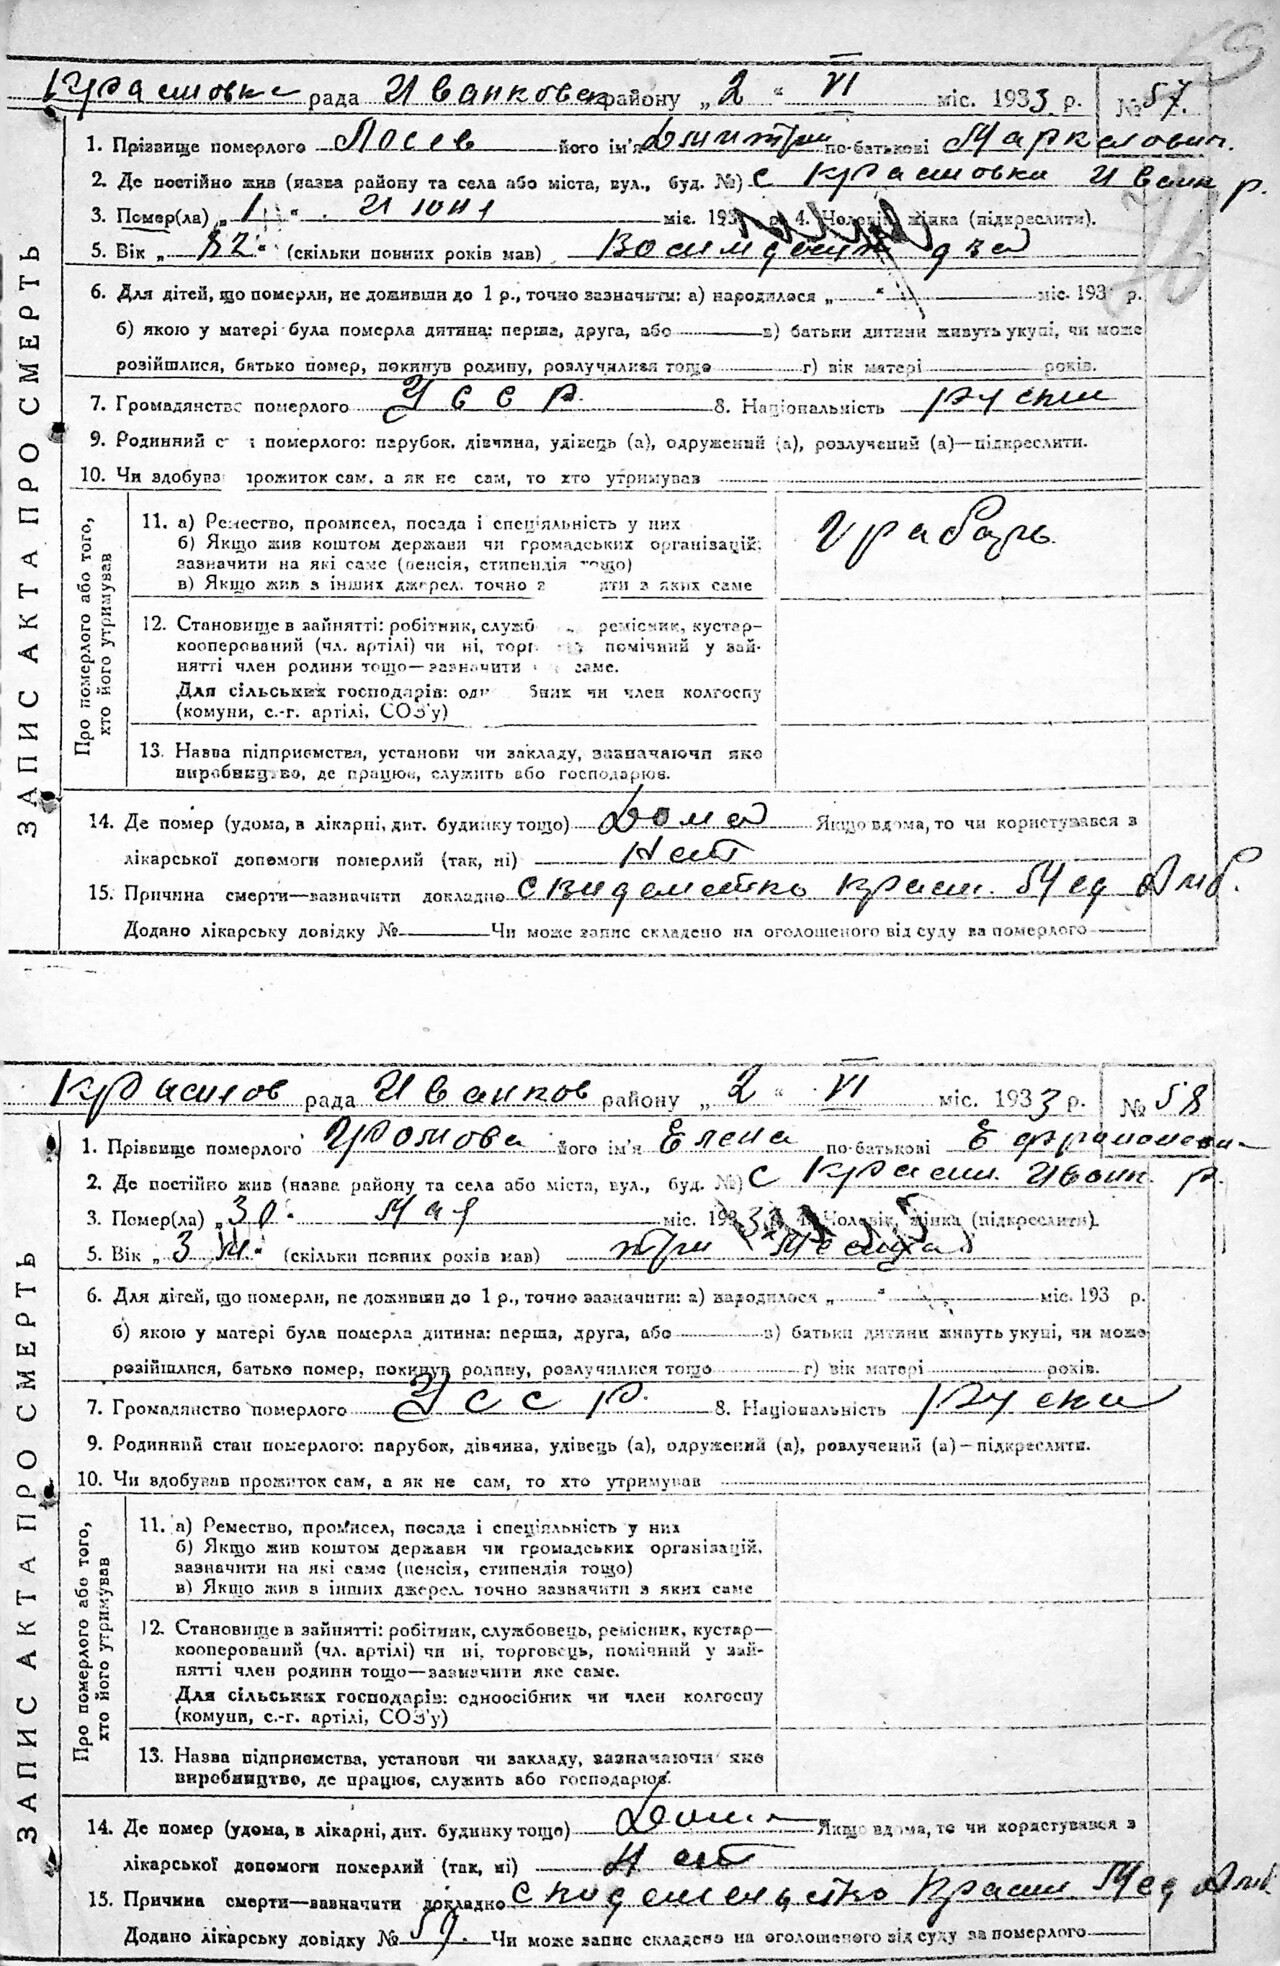 ЗАПИС АКТА ПРО СМЕРТЬ
рада района „ 2 “ VI міс. 1933 р. № 57.
1. Прізвище померлого Лосев його ім'я Дмитри по-батькові Маркелович.
2. Де постійно жив (назва району та села або міста, вул., буд. №) с Р.
3. Помер(ла) „ 1 “ Июня міс. 193 р. 4. Чоловік, жінка (підкреслити).
5. Вік „ 82 “ (скільки повних років мав) Восимдесят два
6. Для дітей, що померли, не доживши до 1 р., точно зазначити: а) народилося „ “ міс. 193 р.
б) якою у матері була померла дитина: перша, друга, або в) батьки дитини живуть укупі, чи може
розійшлися, батько помер, покинув родину, розлучилися тощо г) вік матері років.
7. Громадянство померлого УССР. 8. Національність руски
9. Родинний с і померлого: парубок, дівчина, удівець (а), одружений (а), розлучений (а)—підкреслити.
10. Чи здобува прожиток сам, а як не сам, то хто утримував
Про померлого або того, хто його утримував
11. а) Ремество, промисел, посада і спеціяльність у них Грабарь.
б) Якщо жив коштом держави чи громадських організацій,
зазначити на які саме (пенсія, стипендія тощо)
в) Якщо жив з інших джерел, точно з яких саме
12. Становище в зайнятті: робітник, служб ремісник, кустар-
кооперований (чл. артілі) чи ні, торг помічний у зай-
нятті член родини тощо—зазначити саме.
Для сільських господарів: од бник чи член колгоспу
(комуни, с.-г. артілі, СОЗ'у)
13. Назва підприємства, установи чи закладу, зазначаючи яке
виробництво, де працює, служить або господарює.
14. Де помер (удома, в лікарні, дит. будинку тощо) Дома Якщо вдома, то чи користувався з
лікарської допомоги померлий (так, ні) Нет
15. Причина смерти—зазначити докладно Мед
Додано лікарську довідку № Чи може запис складено на оголошеного від суду за померлого
ЗАПИС АКТА ПРО СМЕРТЬ
рада Иванков району „ 2 “ VI міс. 1933 р. № 58
1. Прізвище померлого Громова його ім'я Елена по-батькові
2. Де постійно жив (назва району та села або міста, вул., буд. №) с Р.
3. Помер(ла) „ 30 “ Мая міс. 193 р. 4. Чоловік, жінка (підкреслити).
5. Вік „ 3 м. “ (скільки повних років мав) три месица
6. Для дітей, що померли, не доживши до 1 р., точно зазначити: а) народилося „ “ міс. 193 р.
б) якою у матері була померла дитина: перша, друга, або в) батьки дитини живуть укупі, чи може
розійшлися, батько помер, покинув родину, розлучилися тощо г) вік матері років.
7. Громадянство померлого УССР. 8. Національність руски
9. Родинний стан померлого: парубок, дівчина, удівець (а), одружений (а), розлучений (а)—підкреслити.
10. Чи здобував прожиток сам, а як не сам, то хто утримував
Про померлого або того, хто його утримував
11. а) Ремество, промисел, посада і спеціяльність у них
б) Якщо жив коштом держави чи громадських організацій,
зазначити на які саме (пенсія, стипендія тощо)
в) Якщо жив з інших джерел, точно зазначити з яких саме
12. Становище в зайнятті: робітник, службовець, ремісник, кустар—
кооперований (чл. артілі) чи ні, торговець, помічний у зай-
нятті член родини тощо—зазначити яке саме.
Для сільських господарів: одноосібник чи член колгоспу
(комуни, с.-г. артілі, СОЗ'у)
13. Назва підприємства, установи чи закладу, зазначаючи яке
виробництво, де працює, служить або господарює.
14. Де помер (удома, в лікарні, дит. будинку тощо) Дома Якщо вдома, то чи користувався з
лікарської допомоги померлий (так, ні) Нет
15. Причина смерти—зазначити докладно Мед
Додано лікарську довідку № 59. Чи може запис складено на оголошеного від суду за померлого